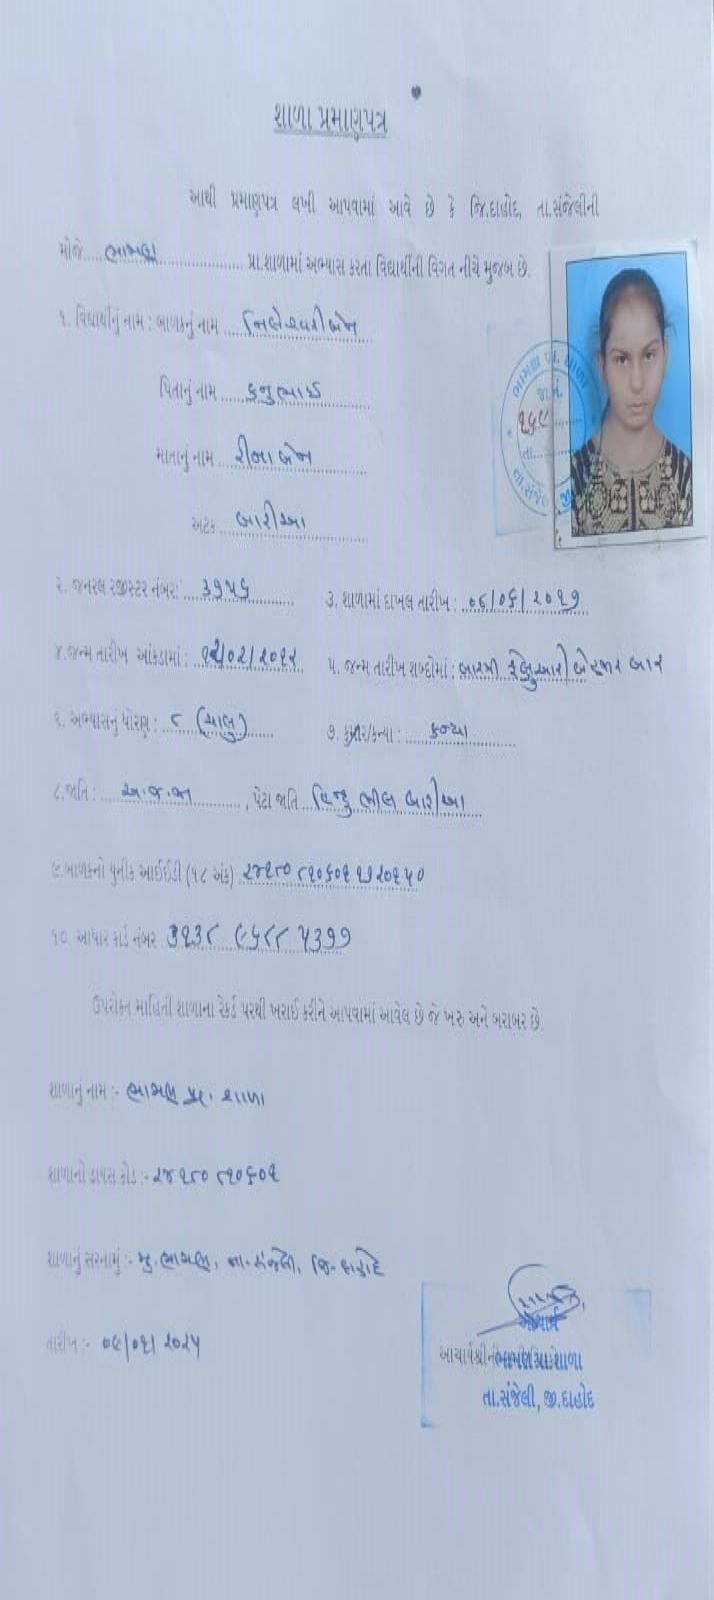 શાળા પ્રમાણપત્ર
આથી પ્રમાણપત્ર લખી આપવામાં આવે છે કે જિ.દાહોદ, તા.સંજેલીની
મોજે.... ભામણ ............ પ્રા.શાળામાં અભ્યાસ કરતા વિદ્યાર્થીની વિગત નીચે મુજબ છે.
૧. વિદ્યાર્થીનું નામ : બાળકનું નામ .... નિલેશ્વરીબેન
પિતાનું નામ ..... કનુભાઈ
માતાનું નામ ... રીનાબેન
અટક ... બારીઆ
ભામણ પ્રા. શાળા
જા.નં.
૧૬૯
તા.
તા.સંજેલી
૨. જનરલ રજીસ્ટર નંબર: ૩૭૫૬
૩. શાળામાં દાખલ તારીખ :
૪.જન્મ તારીખ આંકડામાં : ૧૨/૦૨/૨૦૧૨
૫. જન્મ તારીખ શબ્દોમાં : બારમી ફેબ્રુઆરી બે હજાર બાર
૬. અભ્યાસનું ધોરણ : ૮ (ચાલુ)
૭. કુમાર/કન્યા : કન્યા
૮.જાતિ : અ.જ.જા , પેટા જાતિ હિન્દુ ભીલ બારીઆ
૯.બાળકનો યુનીક આઈઈડી (૧૮ અંક) ૨૪૧૮૦૮૧૦૬૦૧૧૭૨૦૧૫૦
૧૦. આધાર કાર્ડ નંબર
ઉપરોક્ત માહિતી શાળાના રેકર્ડ પરથી ખરાઈ કરીને આપવામાં આવેલ છે જે ખરુ અને બરાબર છે.
શાળાનું નામ :- ભામણ પ્રા. શાળા
શાળાનો ડાયસ કોડ :- ૨૪૧૮૦૮૧૦૬૦૧
શાળાનું સરનામું :- મુ.ભામણ, તા-સંજેલી, જિ-દાહોદ
તારીખ :- ૦૯/૦૧/૨૦૨૫
આચાર્ય
આચાર્યશ્રીની
ભામણ પ્રા.શાળા
તા.સંજેલી, જી.દાહોદ